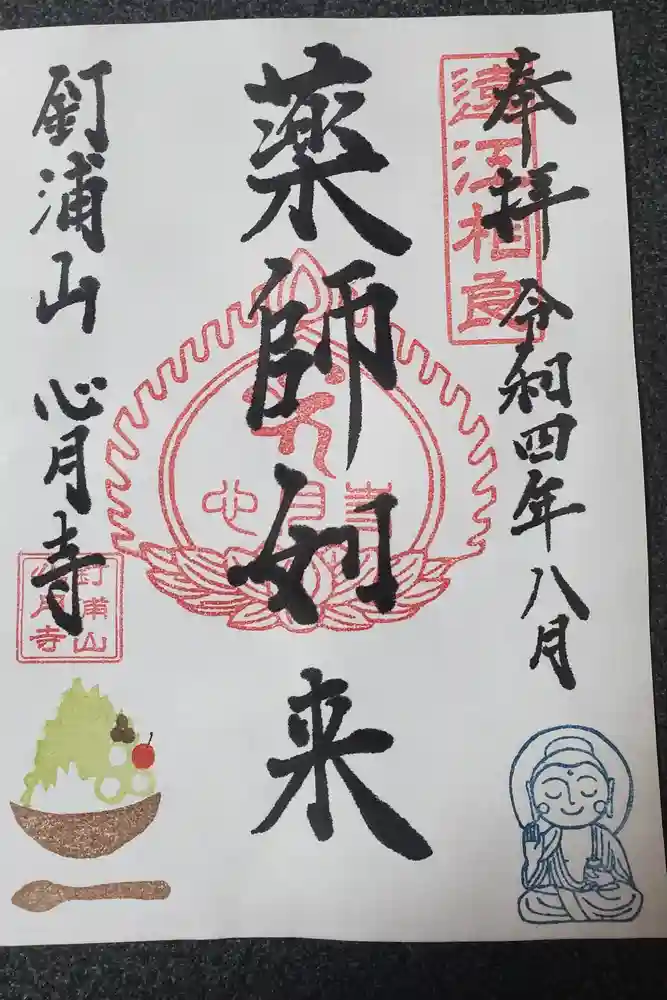 奉拝 令和四年八月
遠江相良
薬師如来
心月寺
釘浦山 心月寺
釘浦山
心月寺